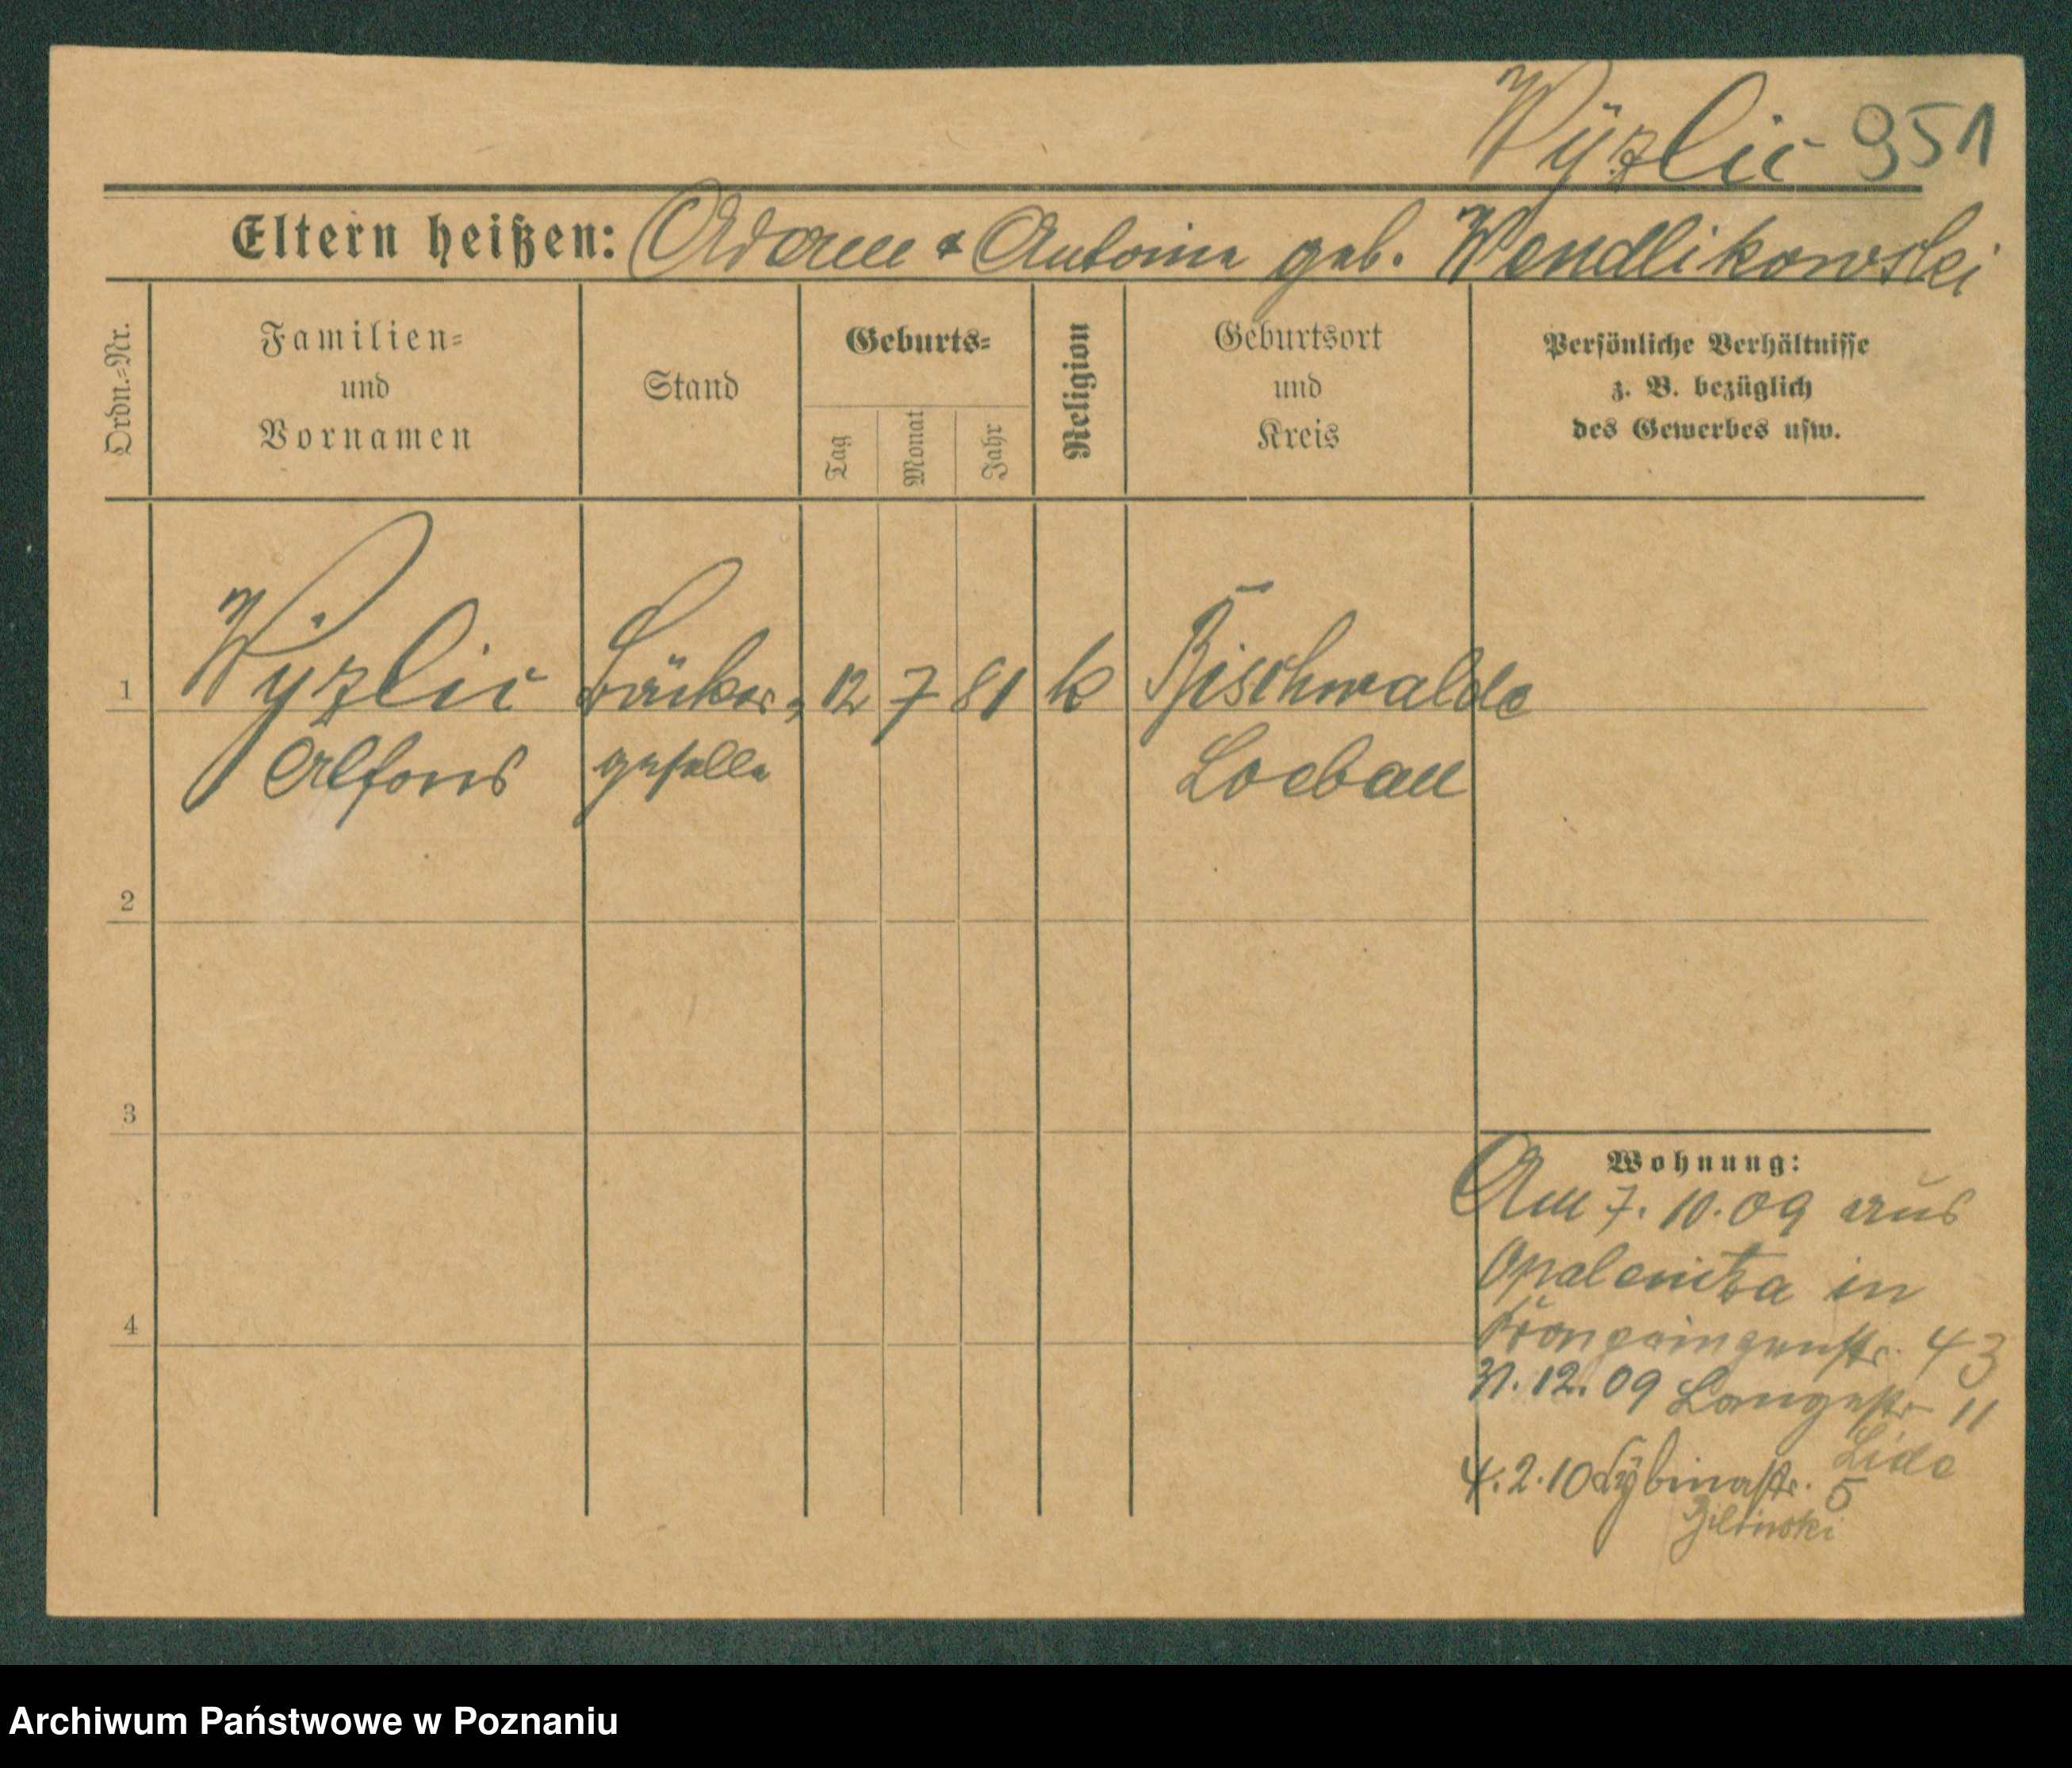 Wÿzlic 951
Eltern heißen: Adam & Antonina geb. Wendlikowski
Ordn.=Nr.
Familien=
und
Vornamen
Stand
Geburts=
Tag
Monat
Jahr
Religion
Geburtsort
und
Kreis
Persönliche Verhältnisse
z. B. bezüglich
des Gewerbes usw.
1 Wÿzlic Bäcker= 12 7 81 k Bischwalde
Alfons geselle Loebau
2
3
4
Wohnung:
Am 7. 10. 09 aus
Opalenitza in
Kronprinzenstr. 43
31. 12. 09 Langestr 11
Lide
4. 2. 10 Zÿbinastr. 5
Bilinski
Archiwum Państwowe w Poznaniu